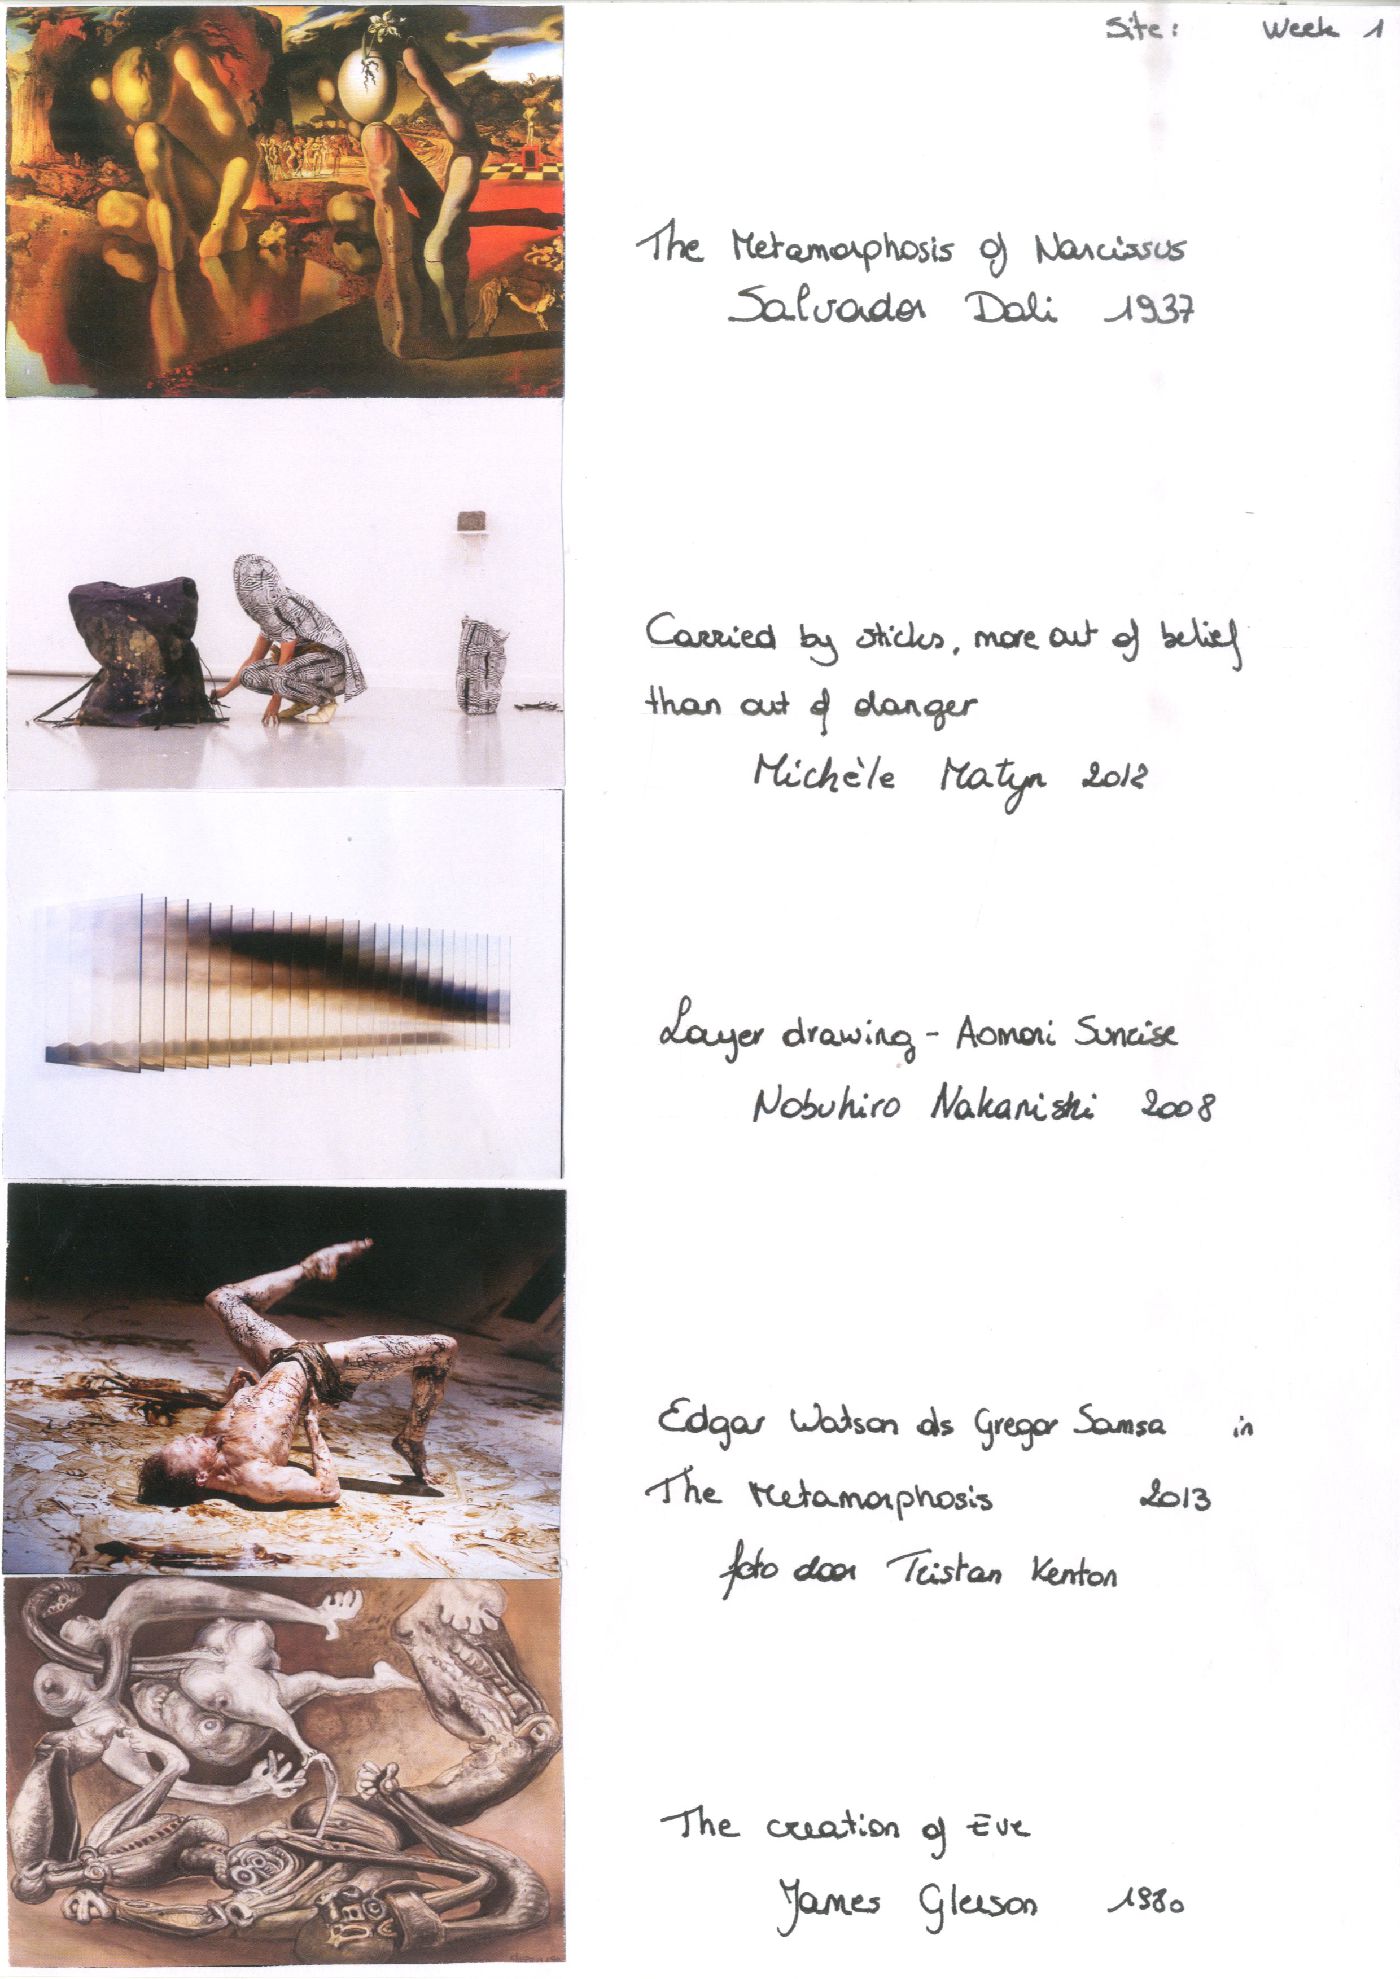 Site: Week 1
The Metamorphosis of Narcissus
Salvador Dali 1937
Carried by sticks, more out of belief
than out of danger
Michèle Matyn 2012
Layer drawing - Aomori Sunrise
Nobuhiro Nakaniski 2008
Edgar Watson als Gregor Samsa in
The Metamorphosis 2013
foto door Tristan Kenton
The creation of Eve
James Gleeson 1980